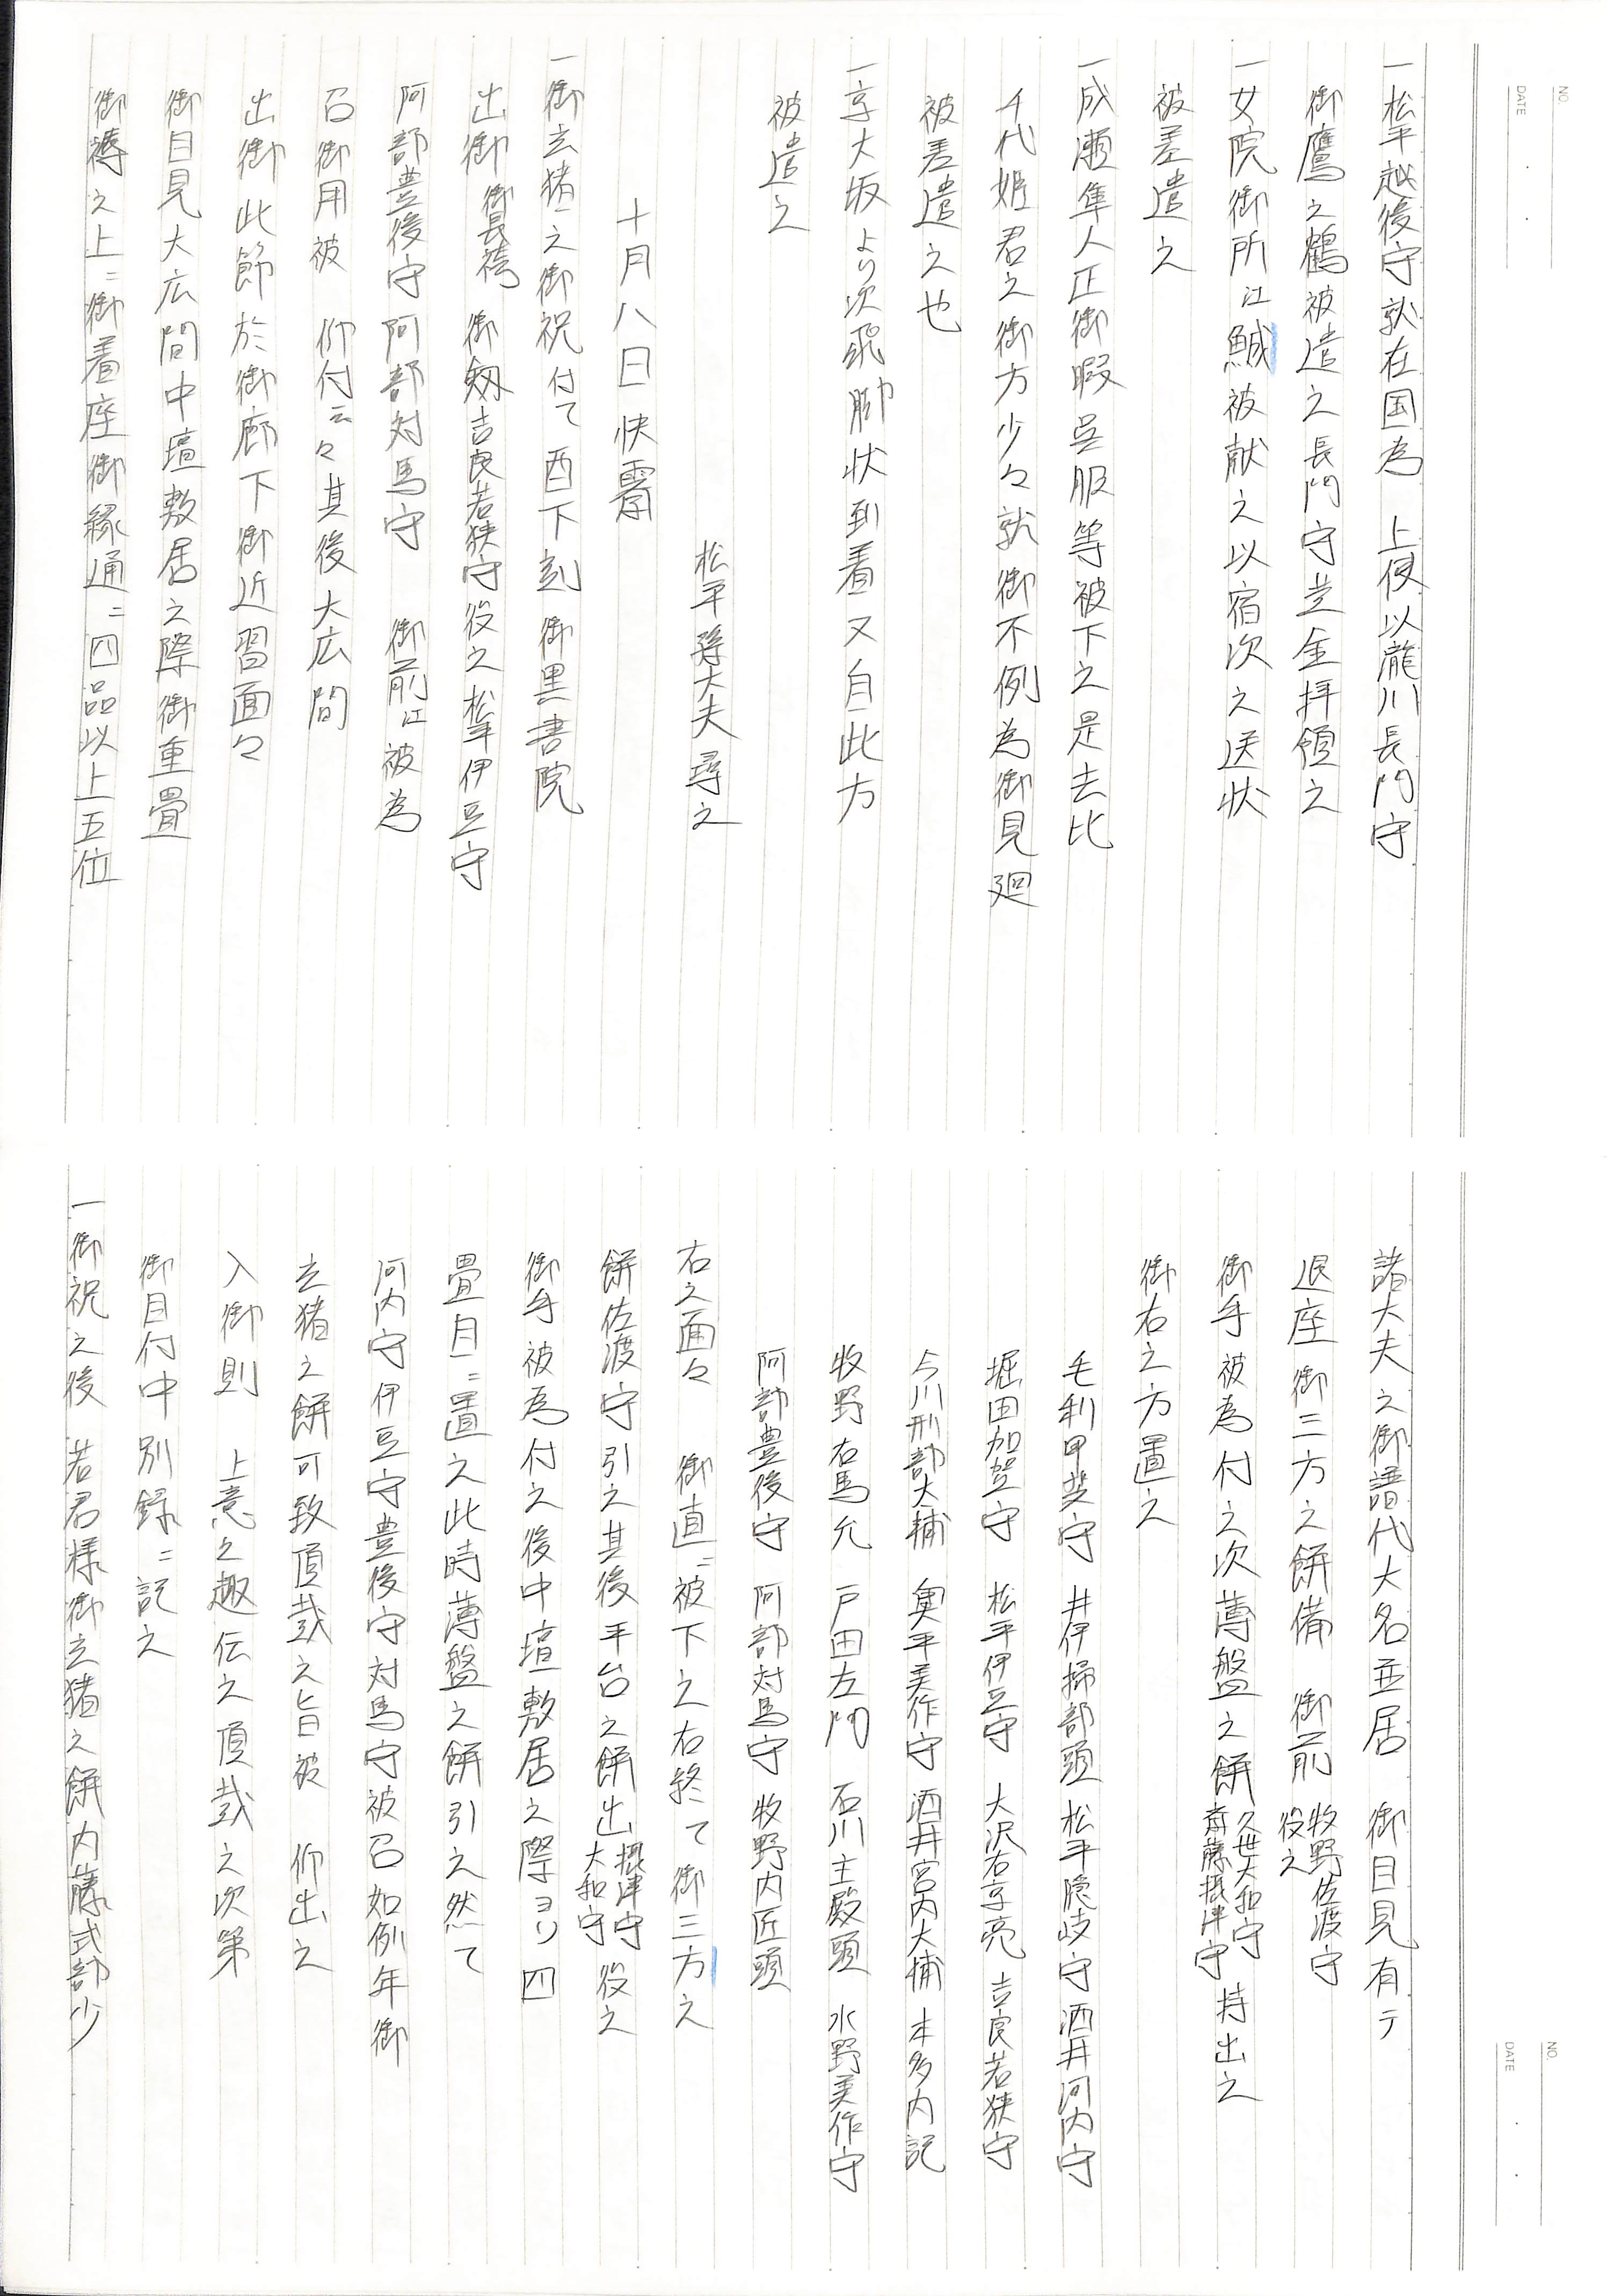 NO.
DATE
一松平越後守就在国為　上使以瀧川長門守
御鷹之鶴被遣之長門守并金拝領之
一女院御所江鰔被献之以宿次之送状
被差遣之
一成瀬隼人正御暇呉服等被下之是去比
千代姫君之御方少々就御不例為御見廻
被差遣之也
一京大坂より次飛脚状到着又自此方
被遣之
松平孫大夫尋之
十月八日快霽
一御玄猪ニ之御祝付て酉下刻御黒書院
出御 御長袴 御剱吉良若狭守役之松平伊豆守
阿部豊後守 阿部対馬守　御前江被為
召御用被　仰付云々其後大広間
出御此節於御廊下御近習面々
御目見大広間中壇敷居之際御重畳
御褥之上ニ御着座御縁通ニ四品以上五位
NO.
DATE
諸大夫之御譜代大名並居　御目見有テ
退座　御三方之餅備　御前 牧野佐渡守役之
御手被為付之次薄盤之餅 久世大和守 斎藤摂津守 持出之
御右之方置之
毛利甲斐守　井伊掃部頭　松平隠岐守　酒井河内守
堀田加賀守　松平伊豆守　大沢右京亮　吉良若狭守
与川刑部大輔　奥平美作守　酒井宮内大輔　本多内記
牧野右馬允　戸田左門　石川主殿頭　水野美作守
阿部豊後守　阿部対馬守　牧野内匠頭
右之面々　御直ニ被下之右終て御三方之
餅佐渡守引之其後平台之餅出 摂津守 大和守 役之
御手被為付之後中壇敷居之際ヨリ四
畳目ニ置之此時薄盤之餅引之然て
河内守伊豆守豊後守対馬守被召如例年御
玄猪之餅可致頂戴之旨被　仰出之
入御則　上意之趣伝之頂戴之次第
御目付中別録ニ記之
一御祝之後　若君様御玄猪之餅内藤式部少